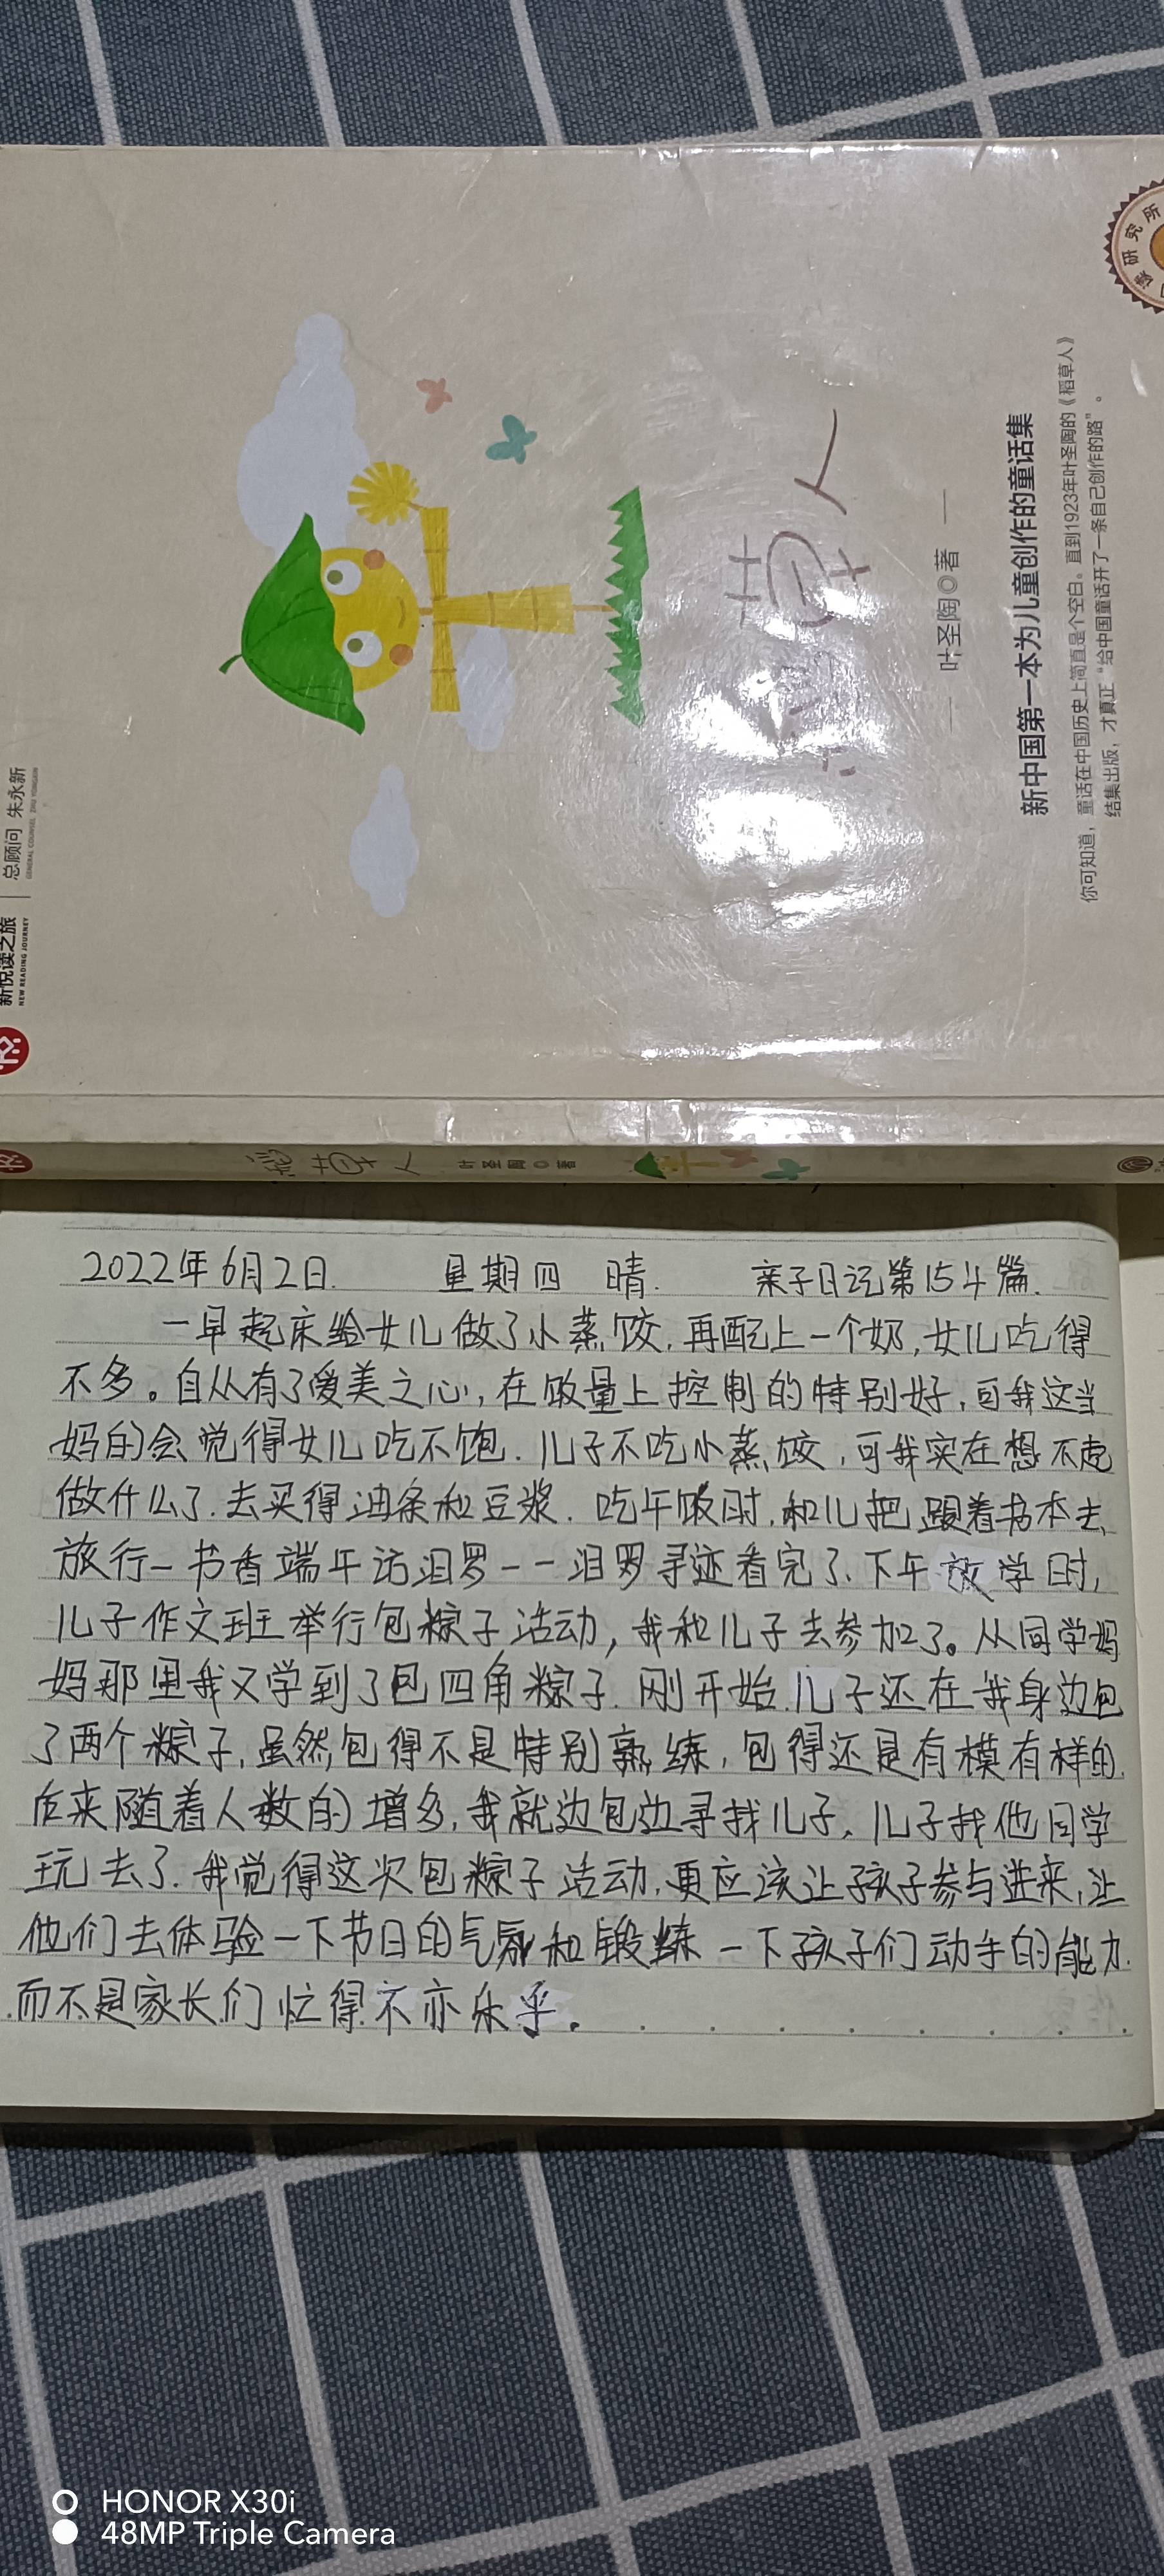 研究所
新悦读之旅
NEW READING JOURNEY
总顾问 朱永新
GENERAL COUNSEL ZHU YONGXIN
稻草人
— 叶圣陶◎著 —
新中国第一本为儿童创作的童话集
你可知道，童话在中国历史上简直是个空白。直到1923年叶圣陶的《稻草人》
结集出版，才真正“给中国童话开了一条自己创作的路”。
稻草人 叶圣陶◎著
2022年6月2日. 星期四 晴. 亲子日记第154篇.
一早起床给女儿做了小蒸饺,再配上一个奶,女儿吃得
不多。自从有了爱美之心,在饭量上控制的特别好,可我这当
妈的会觉得女儿吃不饱.儿子不吃小蒸饺,可我实在想不起
做什么了.去买得油条和豆浆.吃午饭时,和儿把跟着书本去
旅行-书香端午访汨罗--汨罗寻迹看完了.下午放学时,
儿子作文班举行包粽子活动,我和儿子去参加了。从同学妈
妈那里我又学到了包四角粽子.刚开始儿子还在我身边包
了两个粽子,虽然包得不是特别熟练,包得还是有模有样的.
后来随着人数的增多,我就边包边寻找儿子,儿子找他同学
玩去了.我觉得这次包粽子活动,更应该让孩子参与进来,让
他们去体验一下节日的气氛和锻炼一下孩子们动手的能力.
而不是家长们忙得不亦乐乎.
HONOR X30i
48MP Triple Camera